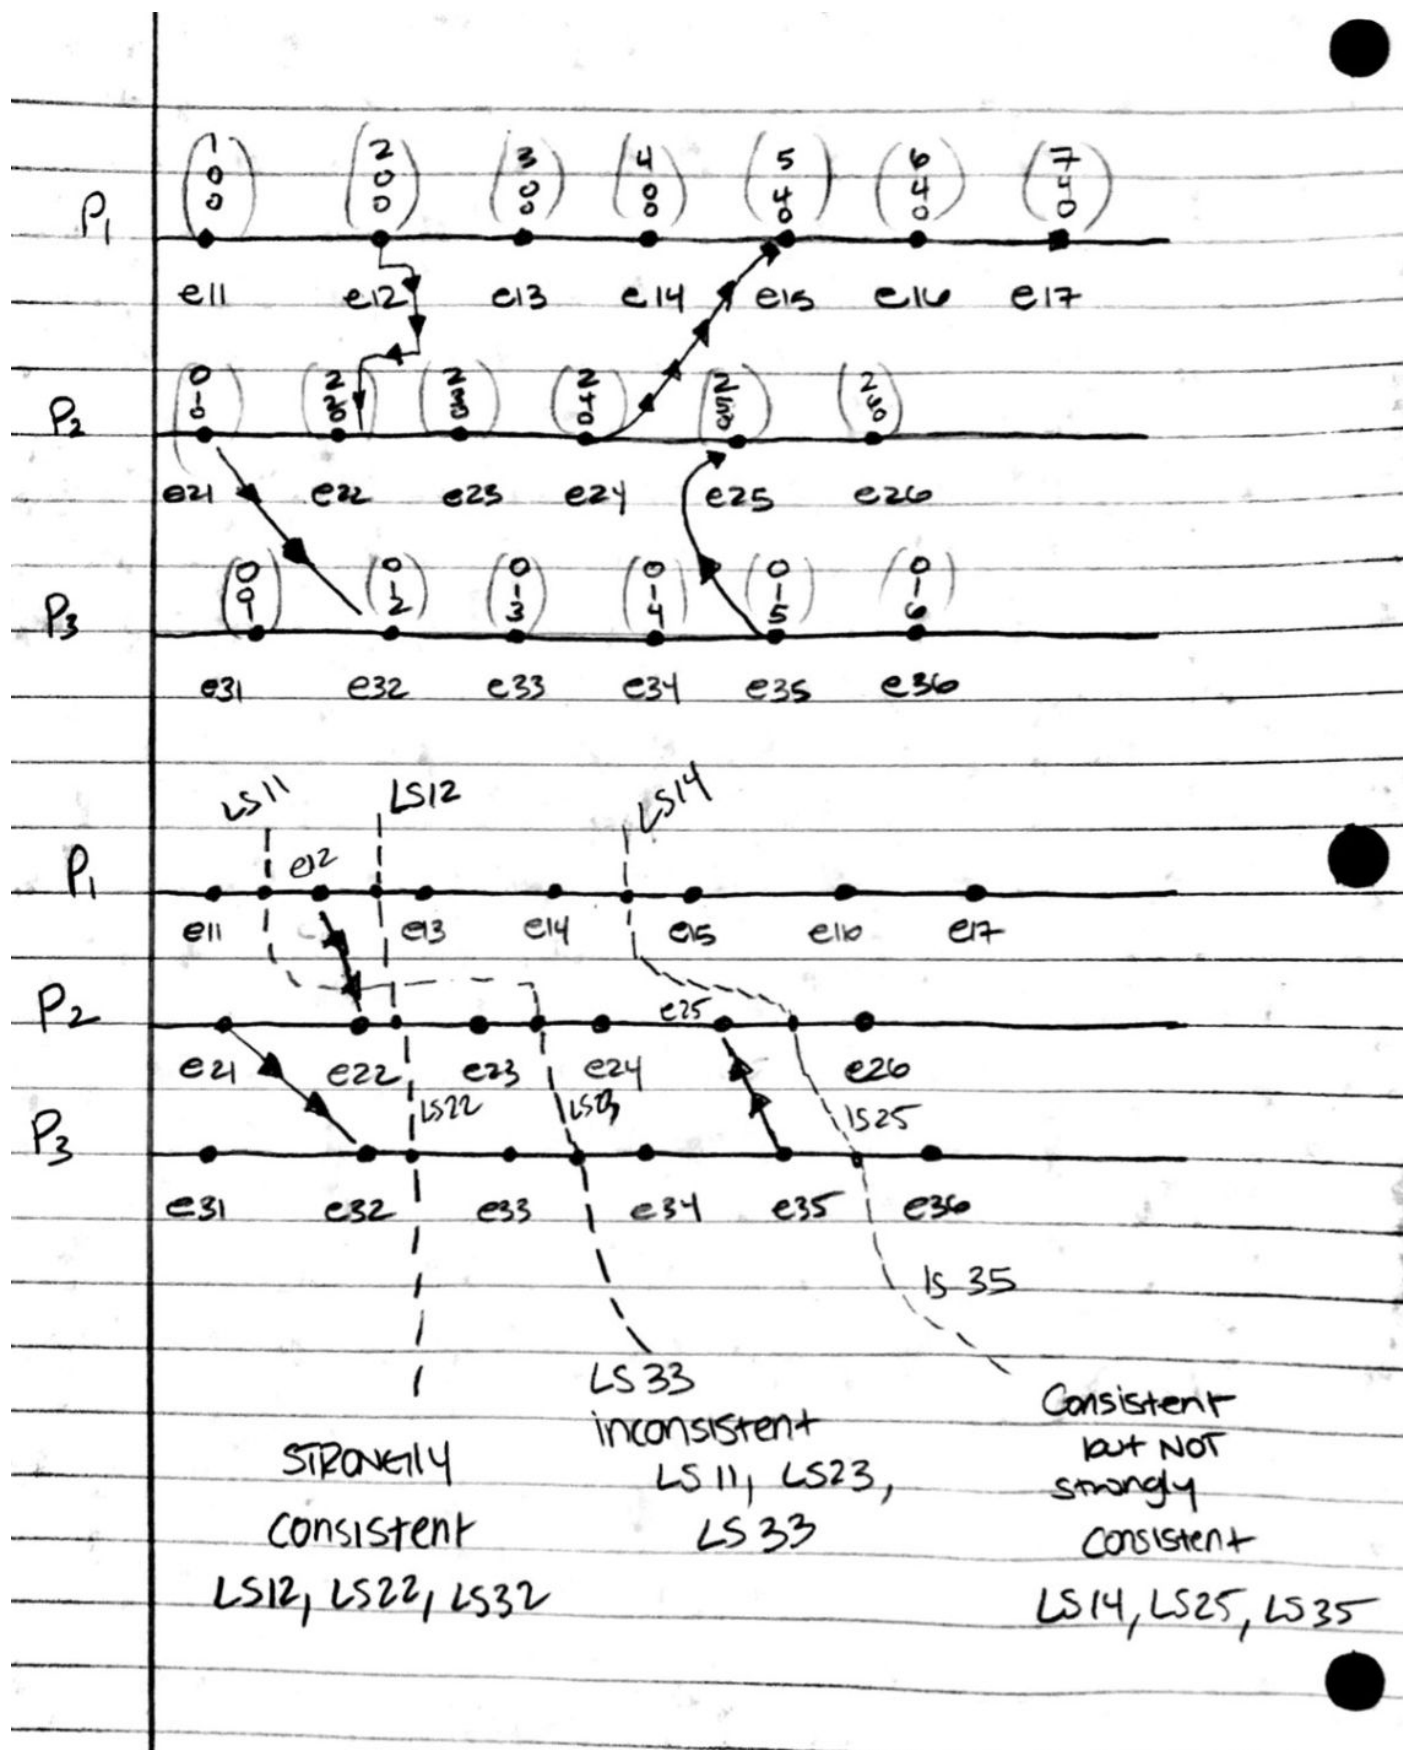 (1 0 0) (2 0 0) (3 0 0) (4 0 0) (5 4 0) (6 4 0) (7 4 0)
P1
e11 e12 e13 e14 e15 e16 e17
(0 1 0) (2 2 0) (2 3 0) (2 4 0) (2 5 5) (2 6)
P2
e21 e22 e23 e24 e25 e26
(0 0 1) (0 1 2) (0 1 3) (0 1 4) (0 1 5) (0 1 6)
P3
e31 e32 e33 e34 e35 e36
LS11 LS12 LS14
e12
P1
e11 e13 e14 e15 e16 e17
P2 e25
e21 e22 e23 e24 e26
LS22 LS23 LS25
P3
e31 e32 e33 e34 e35 e36
LS 35
LS 33
inconsistent
LS 11, LS23,
LS 33
Consistent
but NOT
strongly
consistent
LS14, LS25, LS35
STRONGlY
consistent
LS12, LS22, LS32